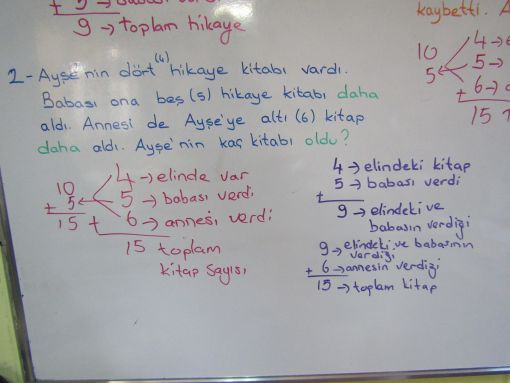 9 → toplam hikaye
kaybetti. A
2-Ayşe'nin dört (4) hikaye kitabı vardı.
Babası ona beş (5) hikaye kitabı daha
aldı. Annesi de Ayşe'ye altı (6) kitap
daha aldı. Ayşe'nin kaç kitabı oldu?
4 → elinde var
5 → babası verdi
+ 6 → annesi verdi
15 toplam
kitap sayısı
10
+ 5
15
4 → elindeki kitap
5 → babası verdi
+
9 → elindeki ve
babasın verdiği
9 → elindeki ve babasının
verdiği
+ 6 → annesin verdiği
15 → toplam kitap
10
5
4 →
5 →
+ 6 →
15